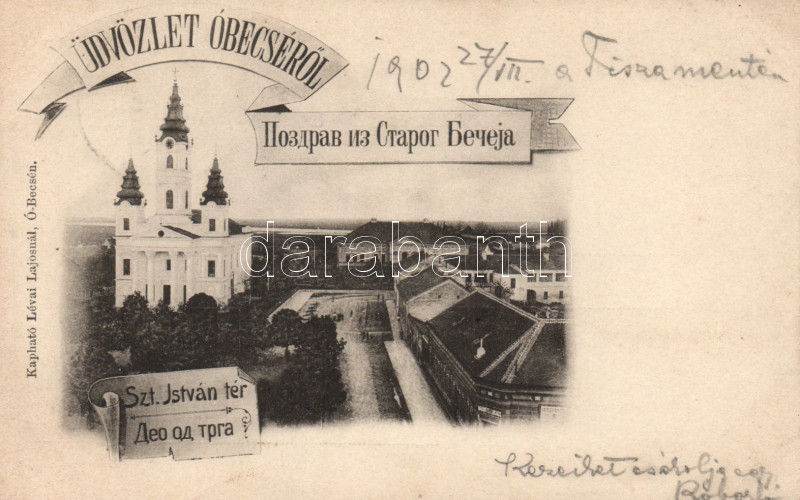 ÜDVÖZLET ÓBECSÉRŐL
1902 27/VII. a Tiszamentén
Поздрав из Старог Бечеја
Kapható Lévai Lajosnál, Ó-Becsén.
darabanth
Szt. István tér
Део од трга
Kezeihet csókolja egy